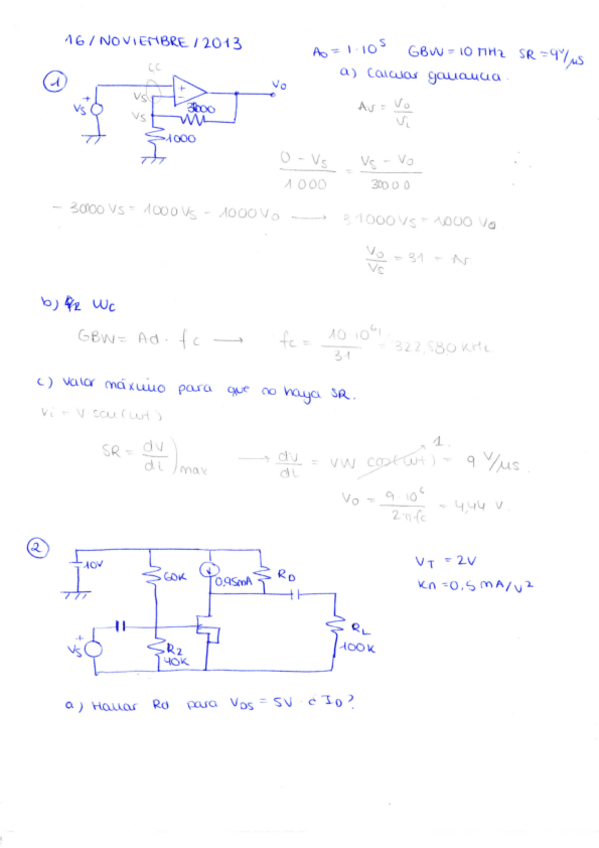 16/NOVIEMBRE/2013
A₀ = 1·10⁵ GBW = 10 MHz SR = 9 V/μs
a) Calcular ganancia.
1
CC
Vs
Vs
Vs
+
-
+
V0
30000
1000
Av = V0/Vi
(0 - Vs)/1000 = (Vs - V0)/30000
- 30000 Vs = 1000 Vs - 1000 V0 → 31000 Vs = 1000 V0
V0/Vs = 31 = Av
b) Wc
GBW = Ad · fc → fc = 10·10⁶/31 = 322,580 KHz
c) Valor máximo para que no haya SR.
Vi = V sen(wt)
SR = dV/dt)max → dV/dt = VW cos(wt) = 9 V/μs.
1.
V0 = 9·10⁶/2πfc = 4,44 V.
2
10V
60K
0,95mA
RD
VT = 2V
Kn = 0,5 mA/V²
+
Vs
R2
40K
RL
100K
a) Hallar Rd para VDS = 5V. ¿ID?